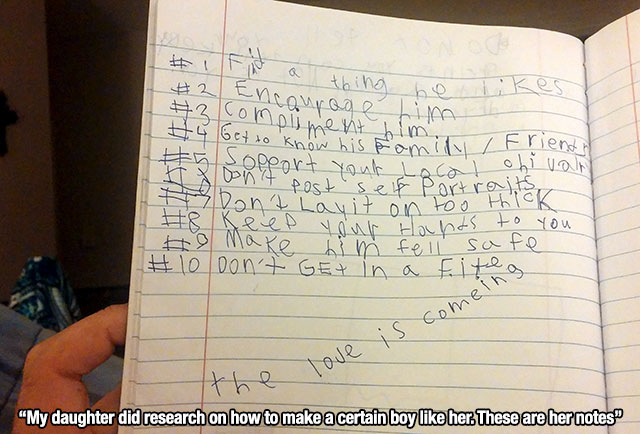 #1 Find a thing he likes
#2 Encourage him
#3 compliment him
#4 Get to know his Family / Friend
#5 Soport your Local chivalr
Don't post self Portraits
#7 Don't Layit on too thick
#8 Keep your Hands to you
#9 Make him fell safe
#10 DON't GEt In a Fite
the love is comeing
“My daughter did research on how to make a certain boy like her. These are her notes”